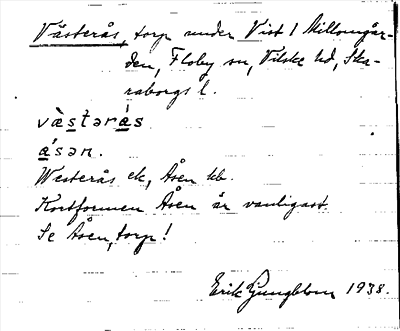 Västerås, torp under Vist 1 Mellomgår-
den, Floby sn, Vilske hd, Ska-
raborgs l.
và̀estərás
ásən.
Westerås ek, Åsen kb.
Kortformen Åsen är vanligast.
Se Åsen, torp!
Erik Ljungblom 1938.